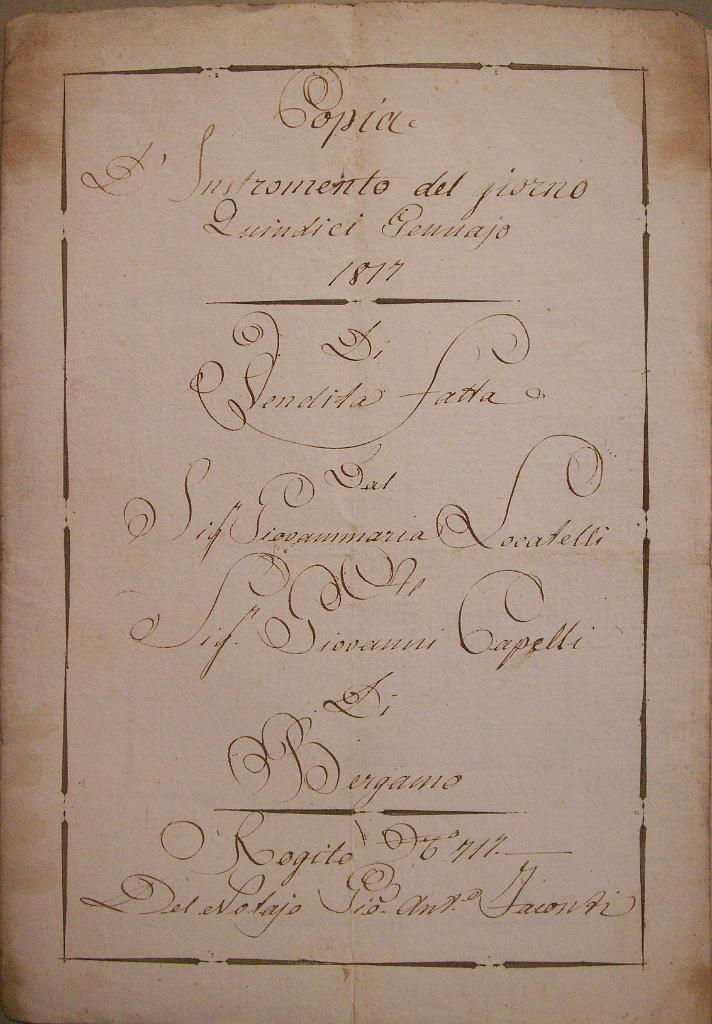 Copia
D'Instromento del giorno
Quindici Gennajo
1817
Di
Vendita fatta
Dal
Sigr Giovanmaria Locatelli
Al
Sigr. Giovanni Capelli
Di
Bergamo
Rogito No 717.
Del Notajo Gio. Ant.o